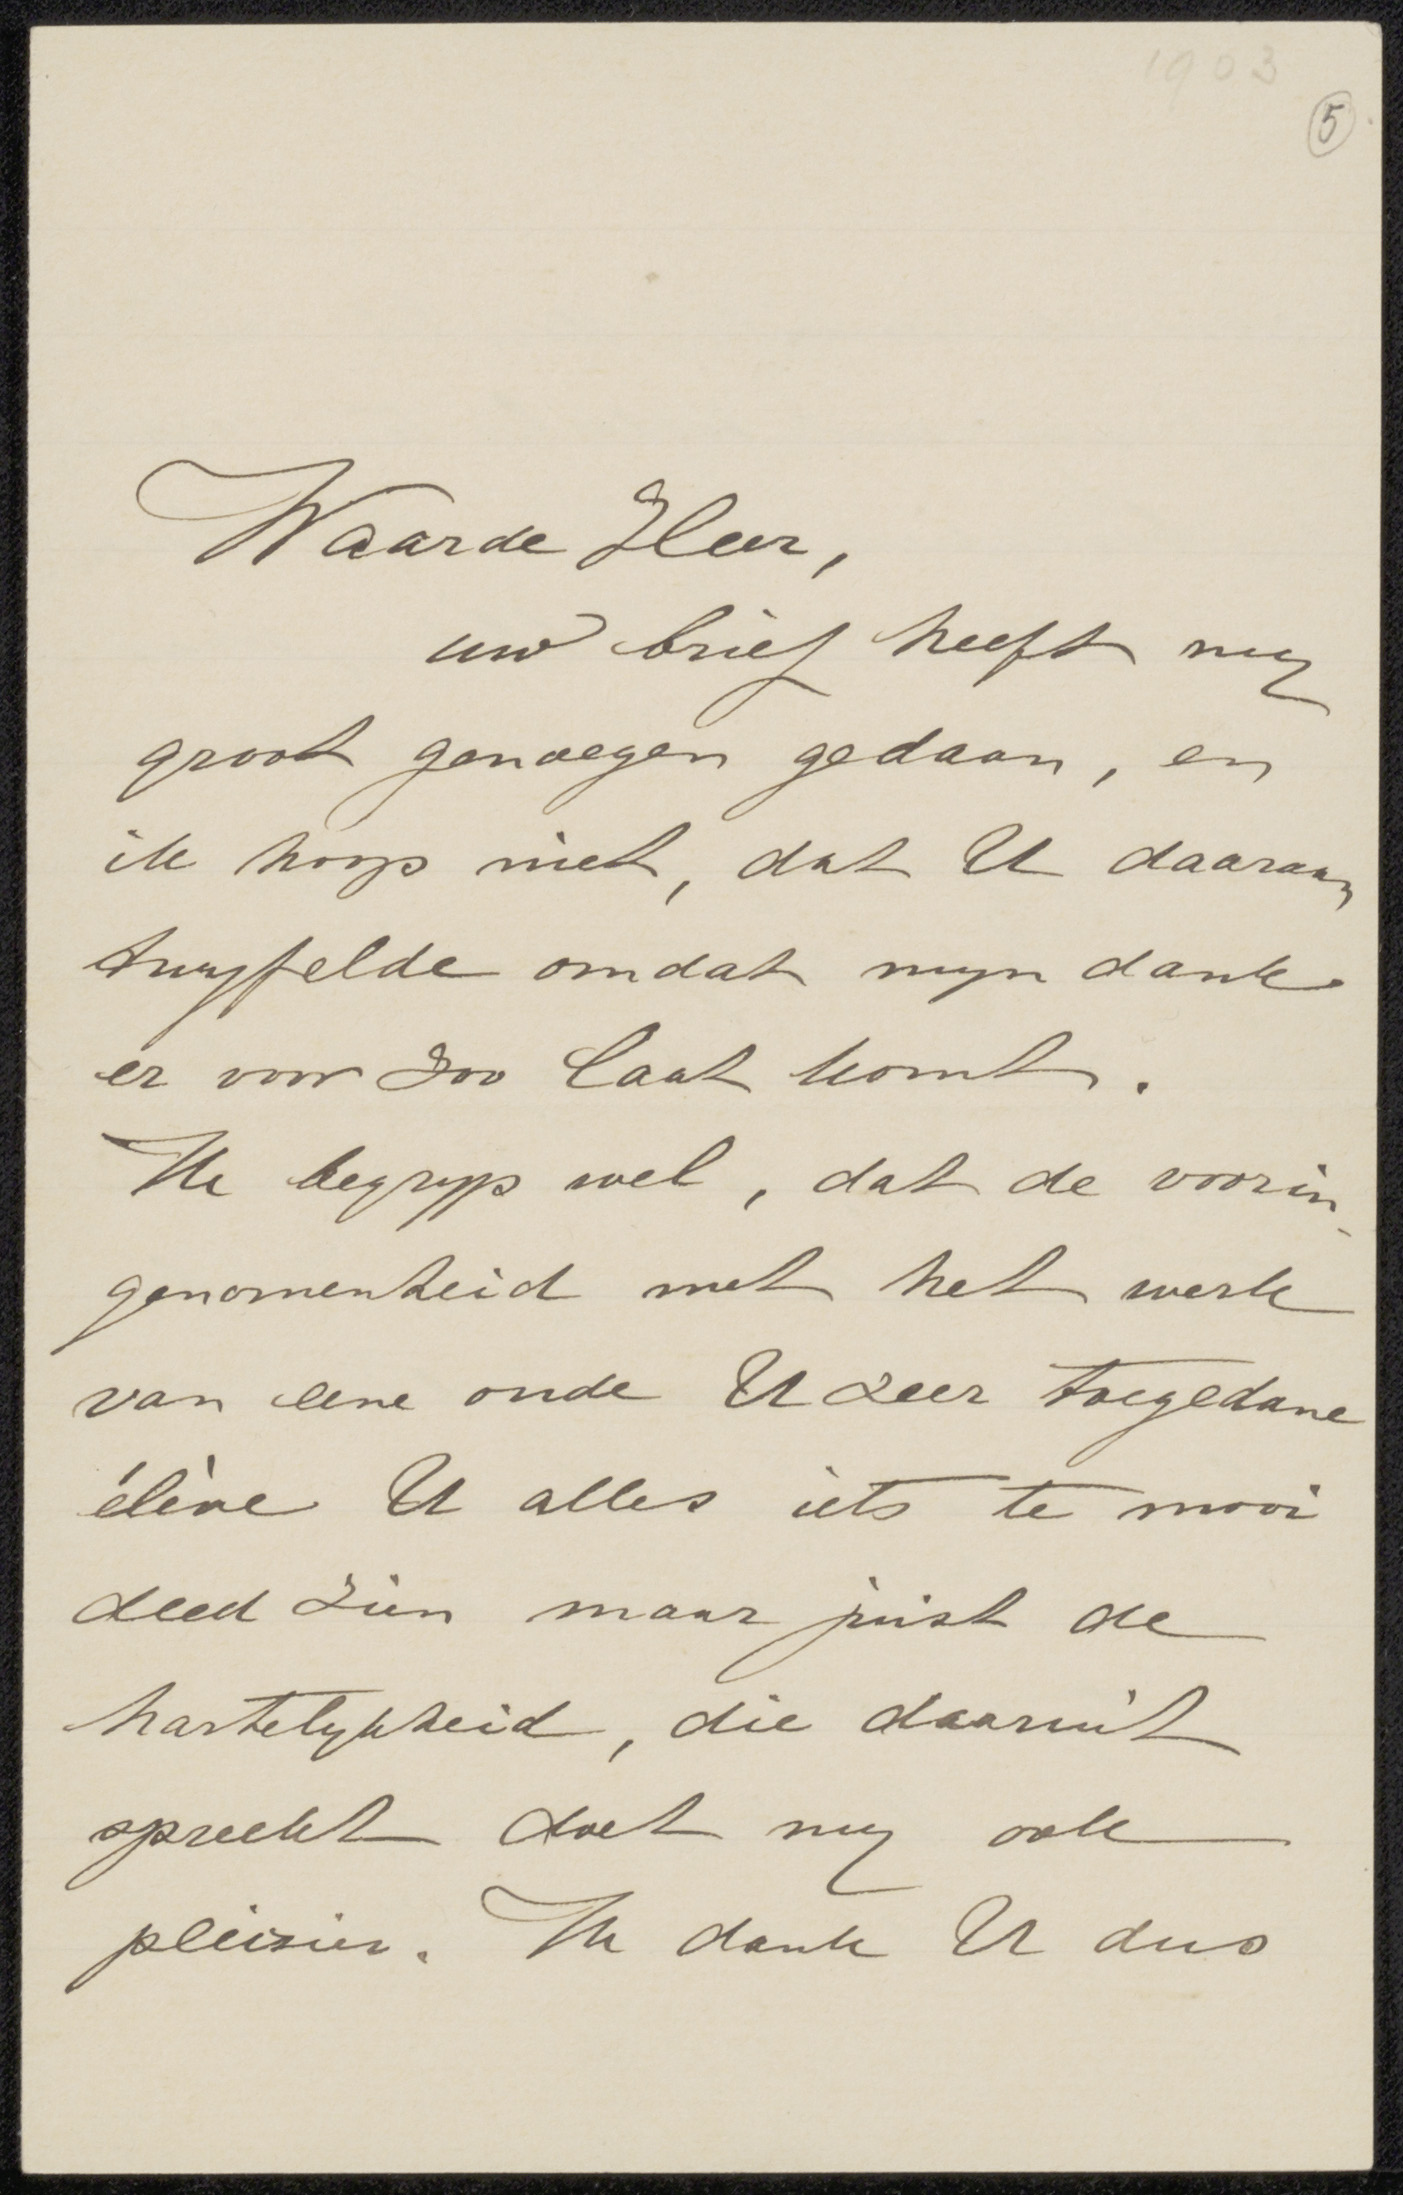 1903
5
Waarde Heer,
uw brief heeft my
groot genoegen gedaan, en
ik hoop niet, dat U daaraan
twyfelde omdat myn dank
er voor zoo laat komt.
Ik begryp wel, dat de voorin-
genomenheid met het werk
van eene oude U zeer toegedane
élève U alles iets te mooi
deed zien maar juist de
hartelykheid, die daaruit
spreekt doet my ook
pleizier. Ik dank U dus